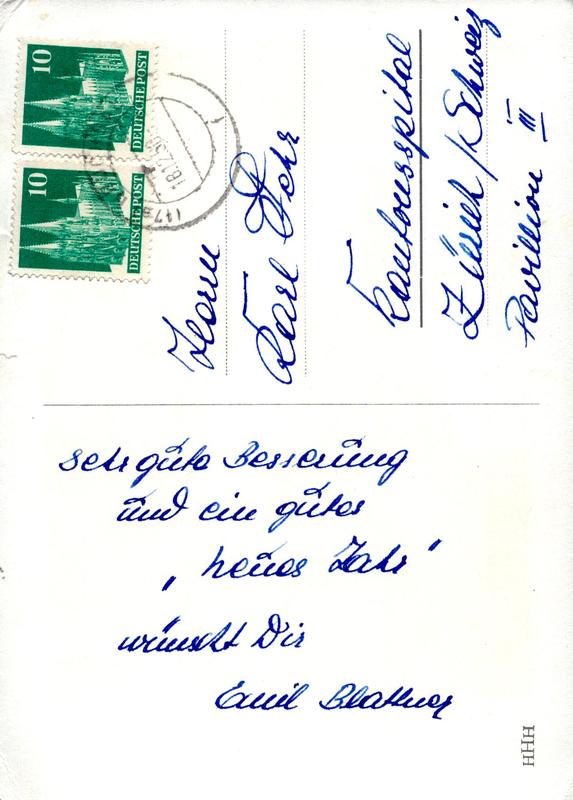 10
DEUTSCHE POST
10
DEUTSCHE POST
(17a)
18.12.50
Herrn
Karl
Kantonsspital
Zürich / Schweiz
Pavillion III
Sehr gute Besserung
und ein gutes
„neues Jahr"
wünscht Dir
Emil Blattner
HHH